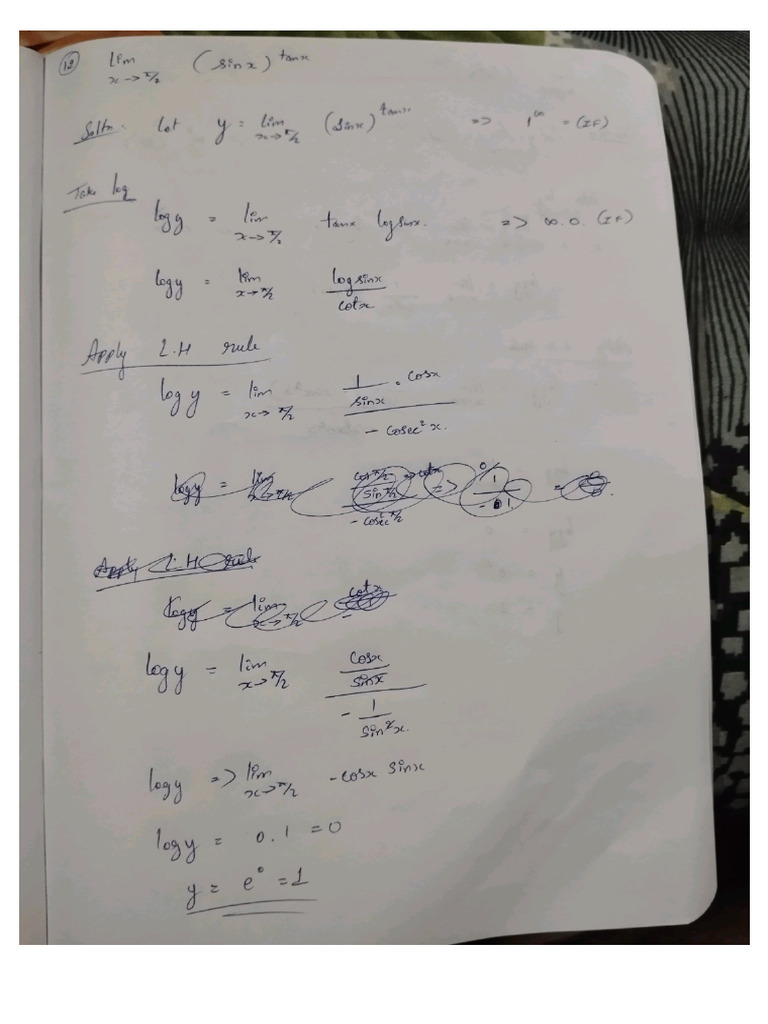 12 lim x→π/2 (sinx)^tanx
Soltn. let y = lim x→π/2 (sinx)^tanx => 1^∞ = (IF)
Take log
logy = lim x→π/2 tanx logsinx. => ∞.0. (IF)
logy = lim x→π/2 logsinx / cotx
Apply L.H rule
logy = lim x→π/2 1/sinx . cosx / - cosec²x.
logy = lim x→π/2 cosx/sinx / - 1/sin²x.
logy => lim x→π/2 -cosx sinx
logy = 0.1 = 0
y = e⁰ = 1